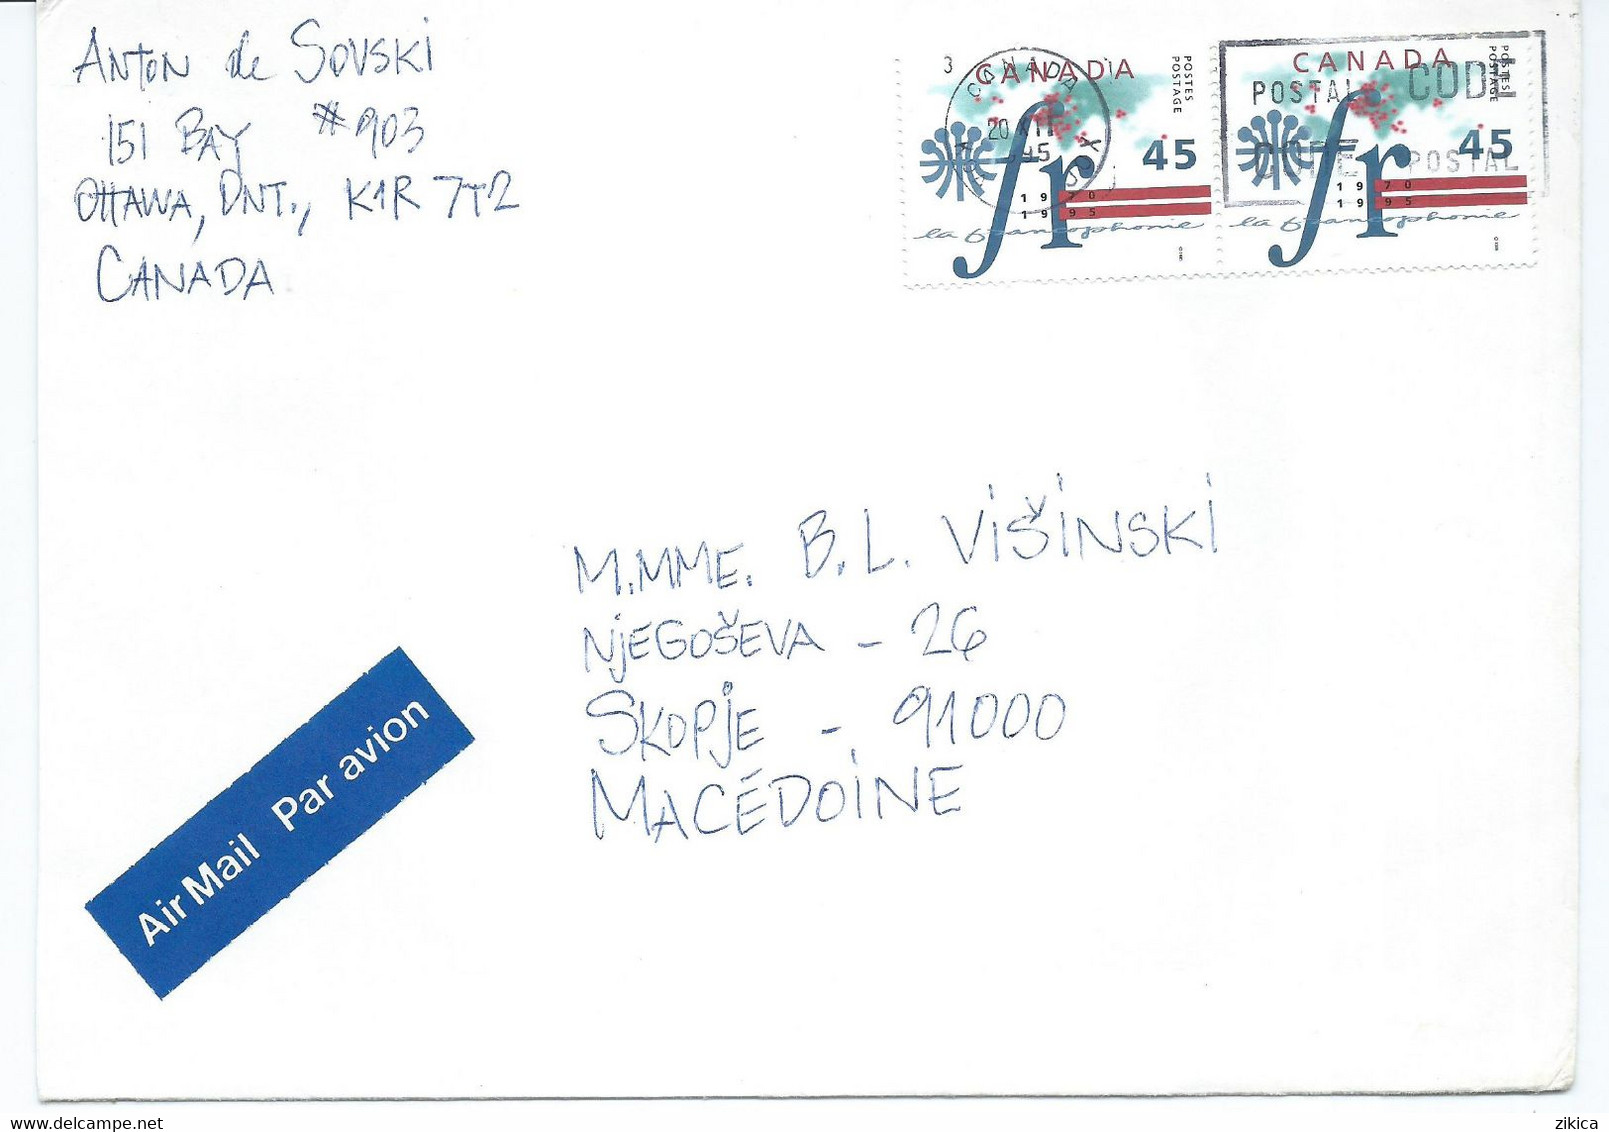 ANTON de SOVSKI
151 BAY #903
OTTAWA, ONT., K1R 7T2
CANADA
3 CANADA
20 XII
CANADA
POSTES
POSTAGE
45
fr
1970
1995
la francophonie
CANADA
POSTES
POSTAGE
45
fr
1970
1995
la francophonie
POSTAL CODE
CODE POSTAL
M.MME. B.L. VIŠINSKI
NJEGOŠEVA - 26
SKOPJE - 91000
MACÉDOINE
Air Mail Par avion
zikica